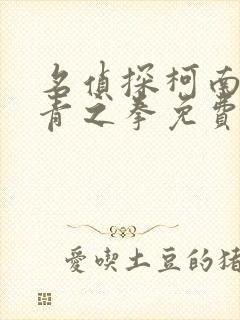 名偵探柯南
青之拳免費
愛喫土豆的豬